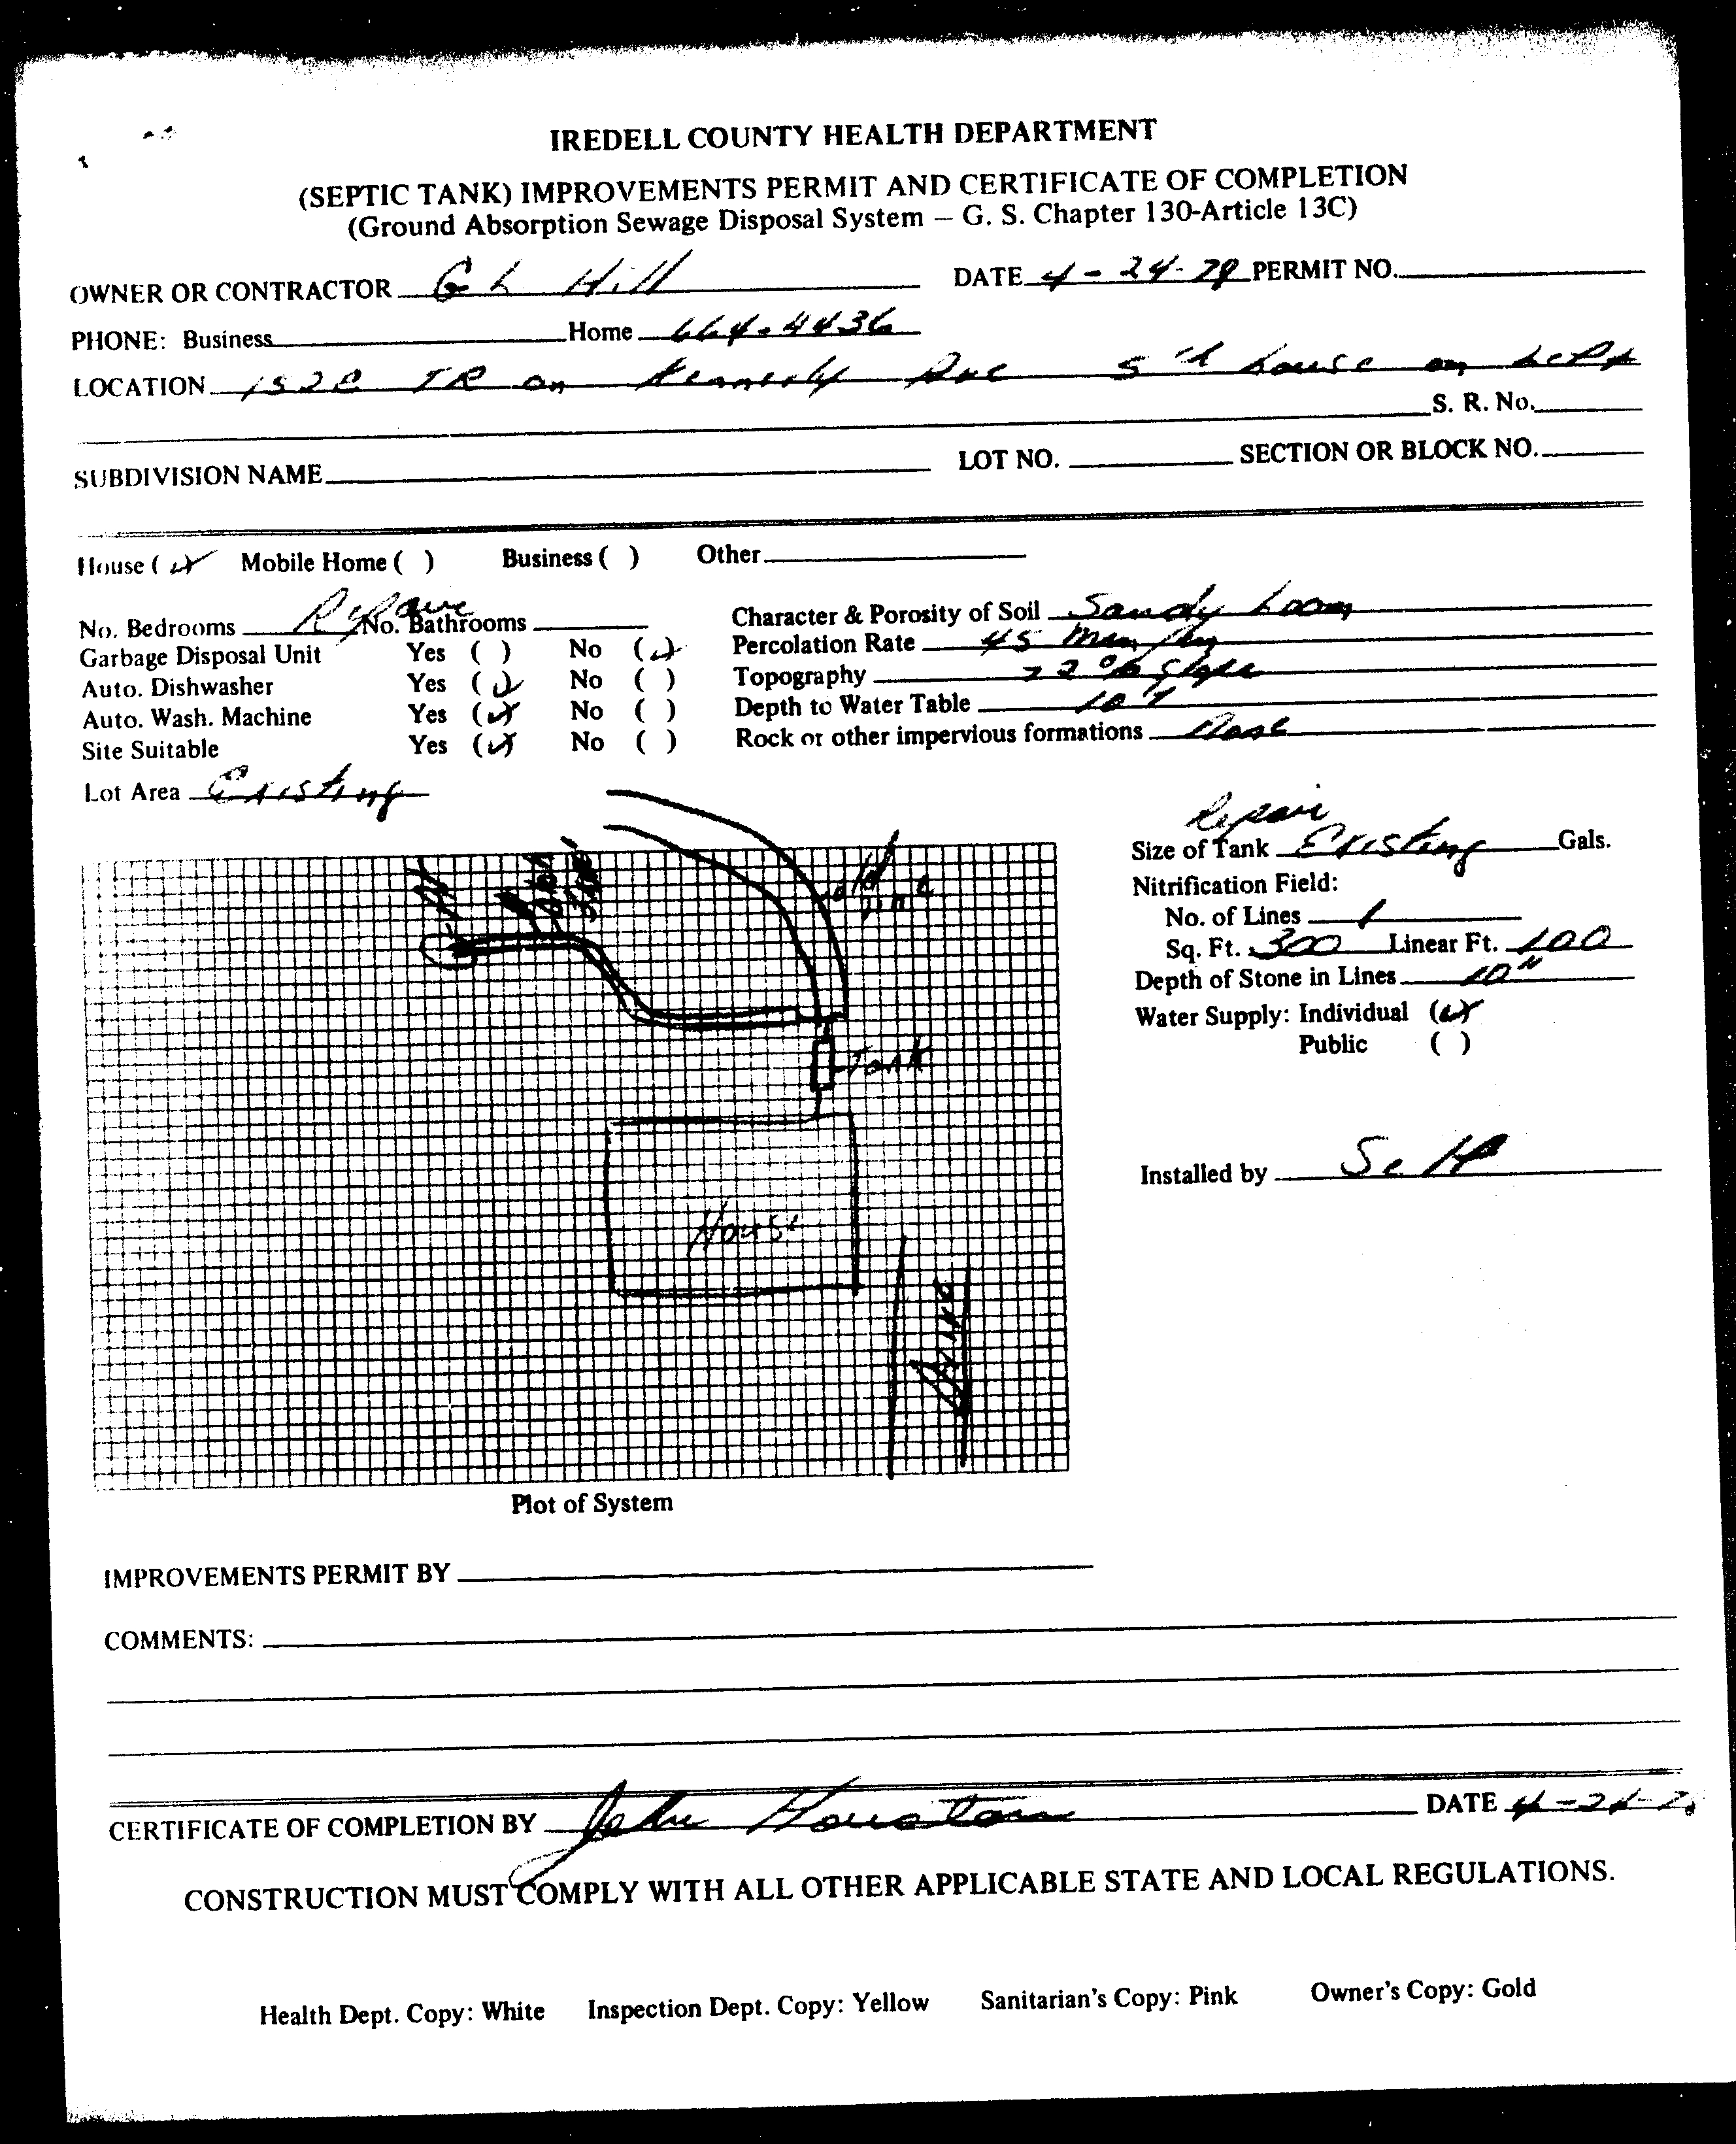 IREDELL COUNTY HEALTH DEPARTMENT
(SEPTIC TANK) IMPROVEMENTS PERMIT AND CERTIFICATE OF COMPLETION
(Ground Absorption Sewage Disposal System – G. S. Chapter 130-Article 13C)
OWNER OR CONTRACTOR G L Hill DATE 4-24-79 PERMIT NO.
PHONE: Business Home 664-4436
LOCATION TR on Kennedy 5th house on Left
S. R. No.
SUBDIVISION NAME LOT NO. SECTION OR BLOCK NO.
House ( ) Mobile Home ( ) Business ( ) Other
No. Bedrooms No. Bathrooms Character & Porosity of Soil Sandy Loam
Garbage Disposal Unit Yes ( ) No ( ) Percolation Rate 45 Min
Auto. Dishwasher Yes ( ) No ( ) Topography 2% Slope
Auto. Wash. Machine Yes ( ) No ( ) Depth to Water Table
Site Suitable Yes ( ) No ( ) Rock or other impervious formations None
Lot Area Existing
Repair
Size of Tank Existing Gals.
Nitrification Field:
No. of Lines 1
Sq. Ft. 300 Linear Ft. 100
Depth of Stone in Lines 10"
Water Supply: Individual ( )
Public ( )
Installed by Self
old line
Tank
House
Drive
Plot of System
IMPROVEMENTS PERMIT BY
COMMENTS:
CERTIFICATE OF COMPLETION BY John Houston DATE
CONSTRUCTION MUST COMPLY WITH ALL OTHER APPLICABLE STATE AND LOCAL REGULATIONS.
Health Dept. Copy: White Inspection Dept. Copy: Yellow Sanitarian's Copy: Pink Owner's Copy: Gold